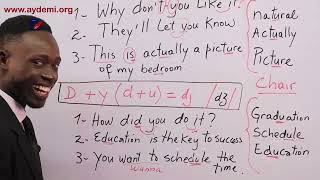 www.aydemi.org
1- Why don't you like it?
2- They'll let you know
3- This is actually a picture
of my bedroom
natural
Actually
Picture
Chair
D + y (d+u) = dʒ /dʒ/
1- How did you do it?
2- Education is the key to success
3- You want to schedule the time.
wanna
Graduation
Schedule
Education